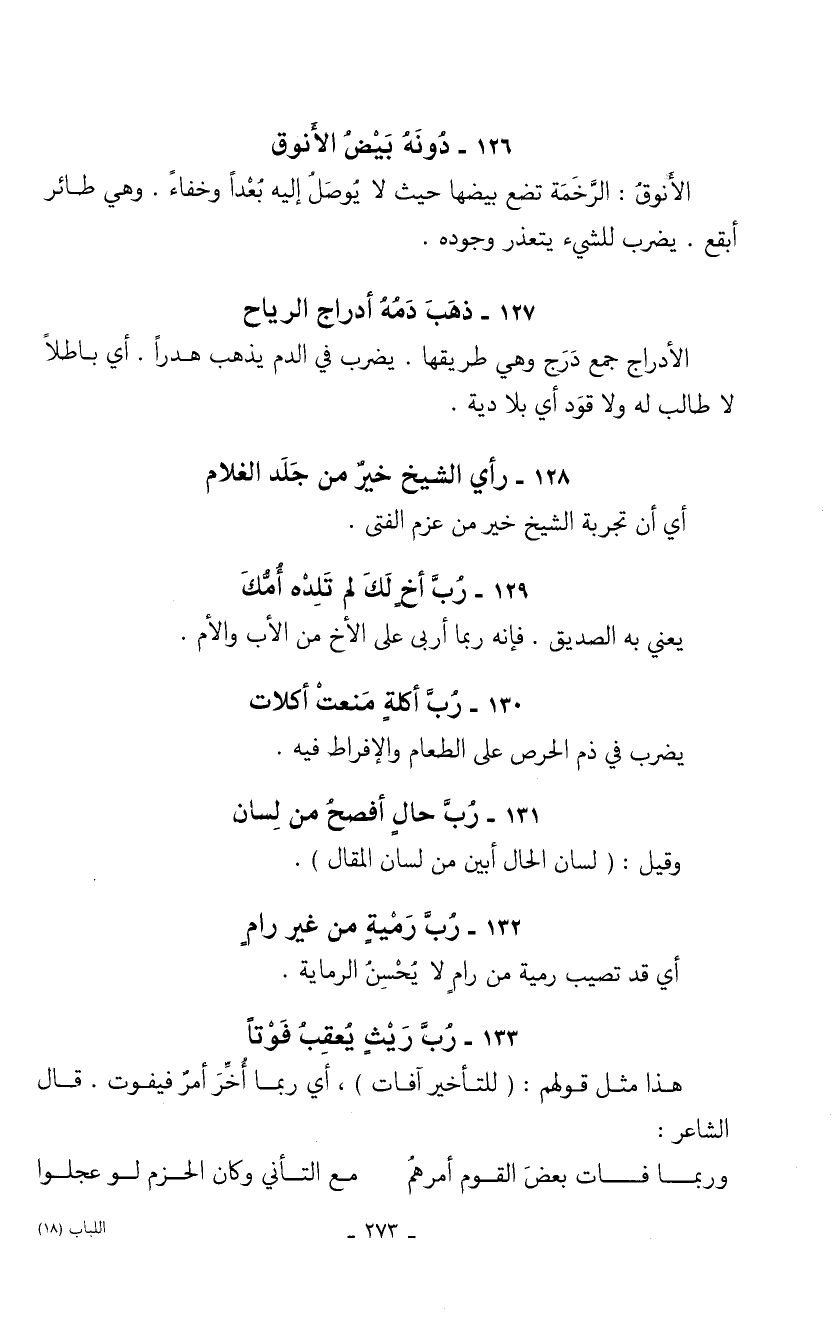 ١٢٦ - دُونَهُ بَيْضُ الأَنوق
الأَنوقُ : الرَّخَمَة تضع بيضها حيث لا يُوصَلُ إليه بُعْداً وخفاءً . وهي طائر
أبقع . يضرب للشيء يتعذر وجوده .
١٢٧ - ذهَبَ دَمُهُ أدراج الرياح
الأدراج جمع دَرَج وهي طريقها . يضرب في الدم يذهب هدراً . أي باطلاً
لا طالب له ولا قوَد أي بلا دية .
١٢٨ - رأي الشيخ خيرٌ من جَلَد الغلام
أي أن تجربة الشيخ خير من عزم الفتى .
١٢٩ - رُبَّ أخٍ لَكَ لم تَلِدْه أُمُّكَ
يعني به الصديق . فإنه ربما أربى على الأخ من الأب والأم .
١٣٠ - رُبَّ أكلةٍ مَنعتْ أكلات
يضرب في ذم الحرص على الطعام والإفراط فيه .
١٣١ - رُبَّ حالٍ أفصحُ من لِسان
وقيل : ( لسان الحال أبين من لسان المقال ) .
١٣٢ - رُبَّ رَمْيةٍ من غير رامٍ
أي قد تصيب رمية من رامٍ لا يُحْسِنُ الرماية .
١٣٣ - رُبَّ رَيْثٍ يُعقِبُ فَوْتاً
هذا مثل قولهم : ( للتأخير آفات ) ، أي ربما أُخِّرَ أمرٌ فيفوت . قال
الشاعر :
وربما فات بعضَ القوم أمرهمُ مع التأني وكان الحزم لو عجلوا
- ٢٧٣ - اللباب (١٨)